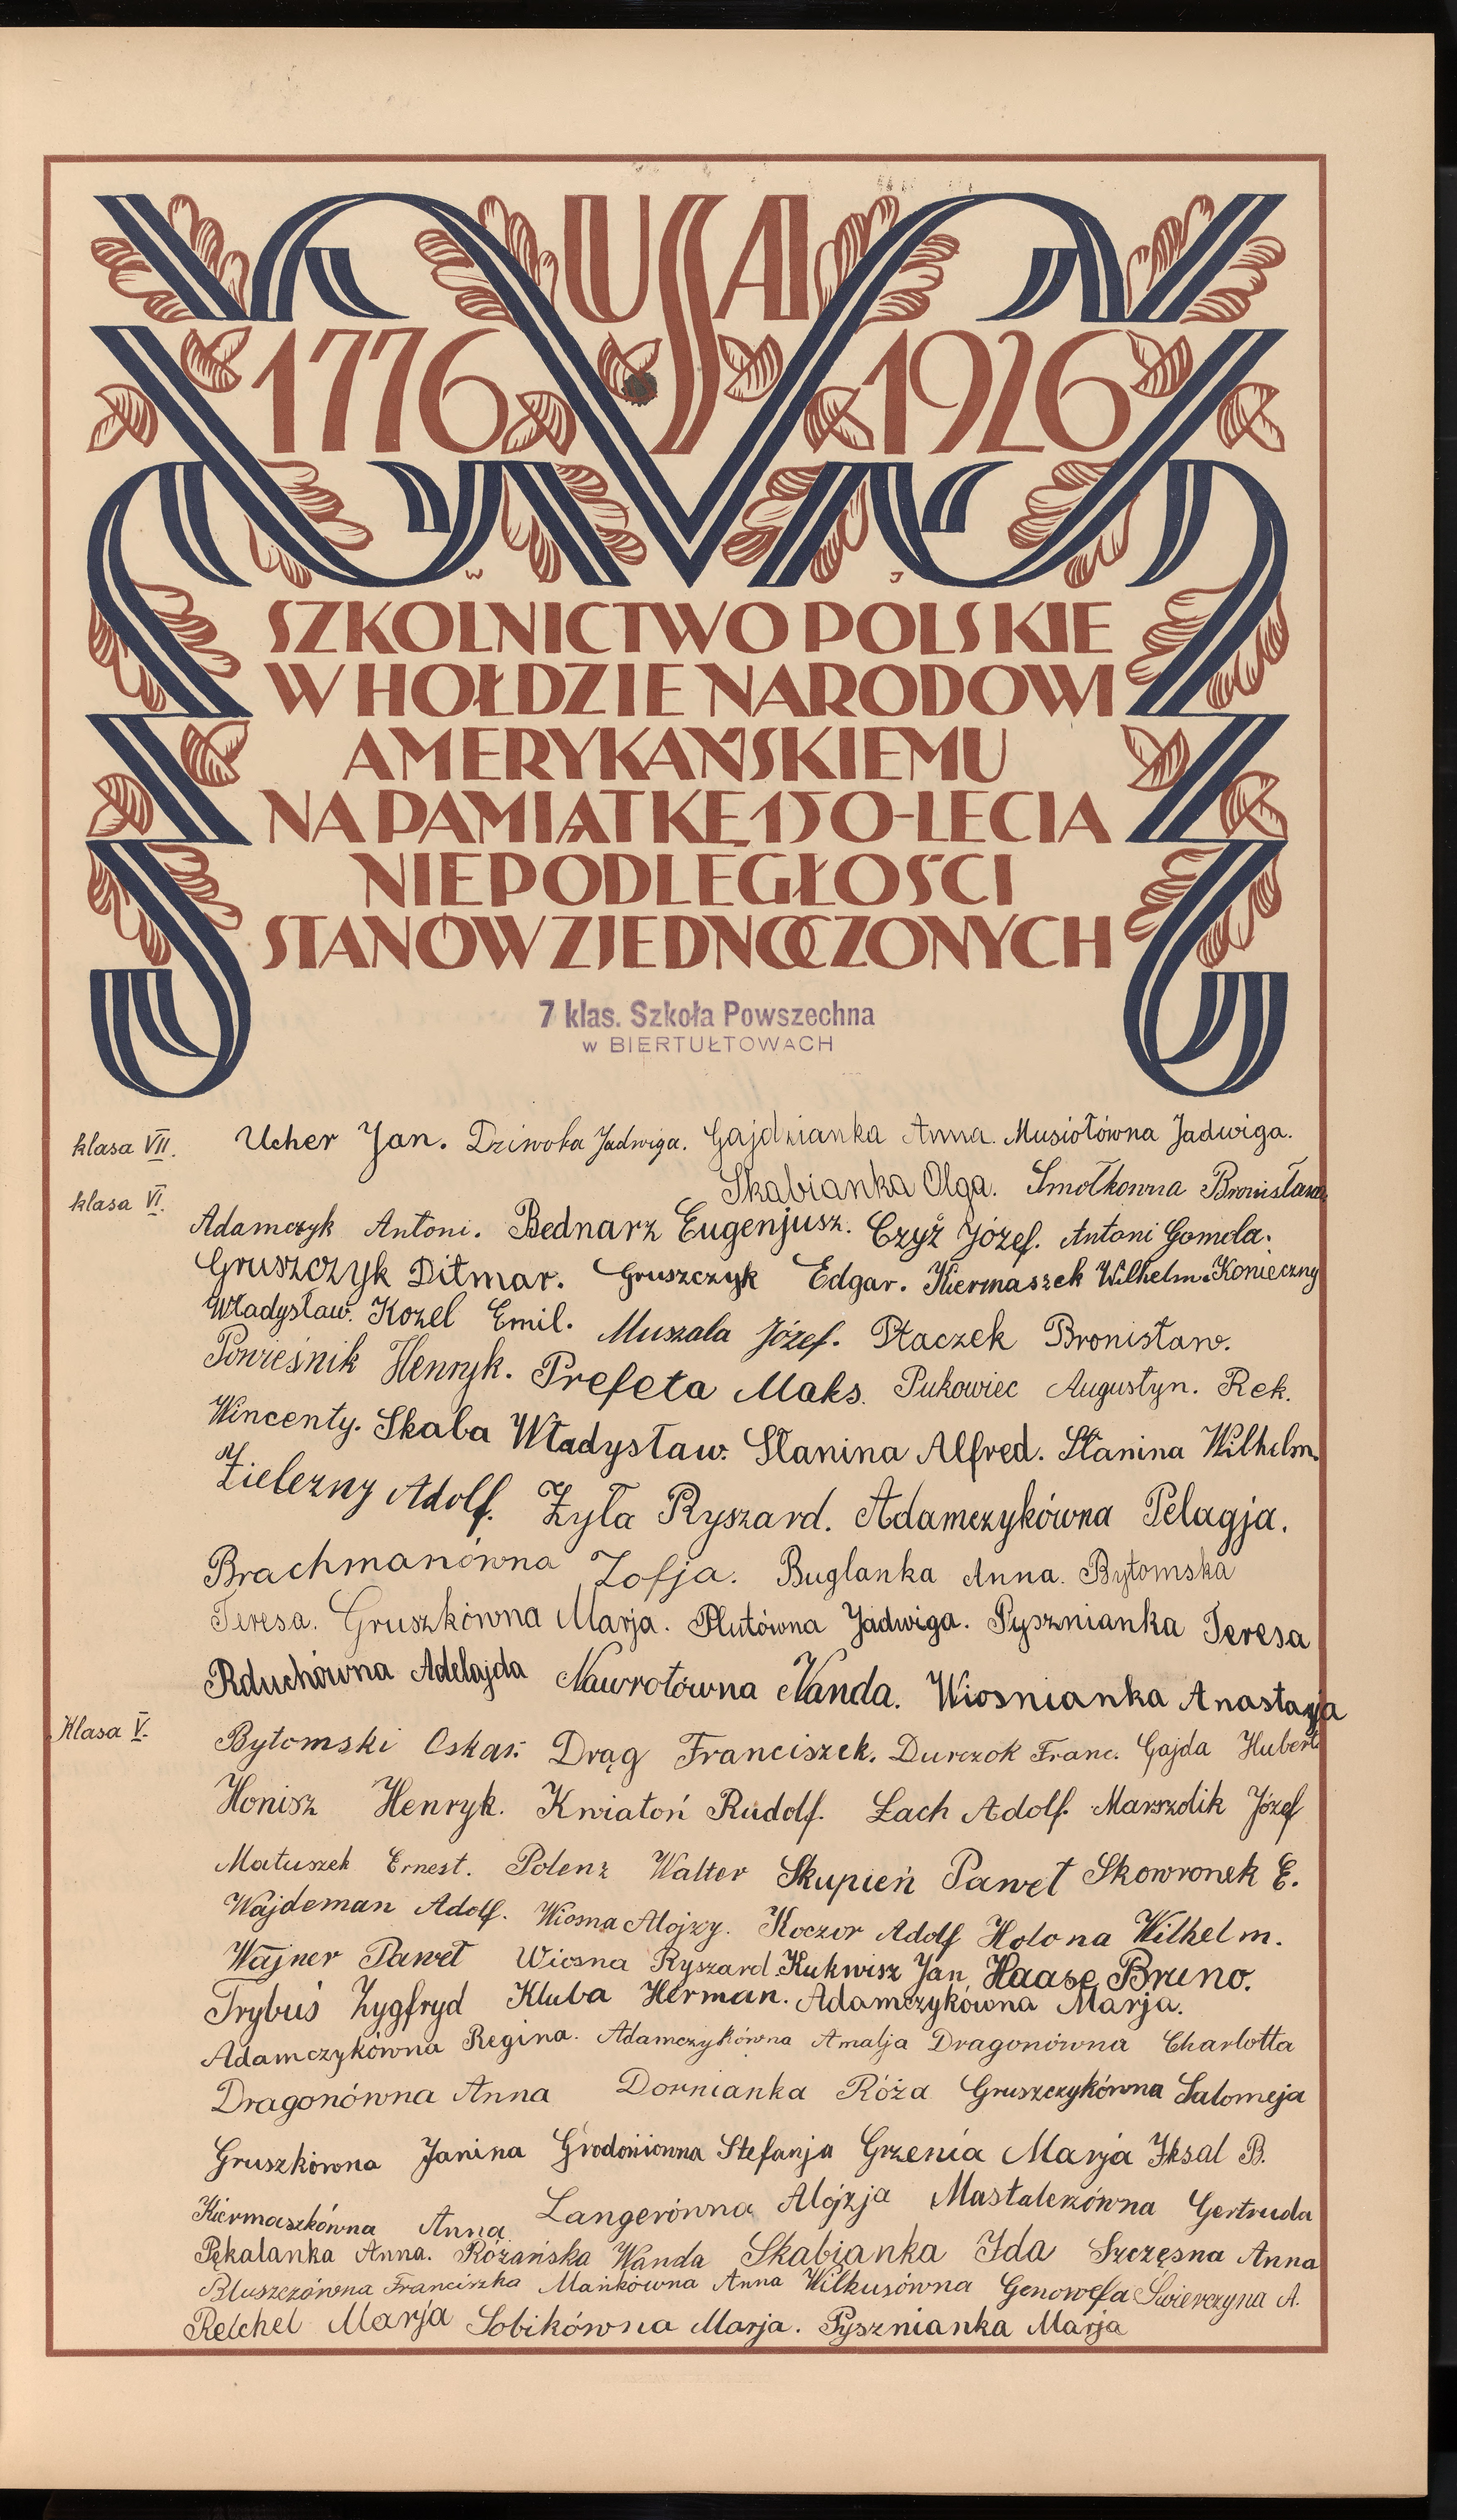 USA
1776 1926
W J
SZKOLNICTWO POLSKIE
W HOŁDZIE NARODOWI
AMERYKAŃSKIEMU
NA PAMIĄTKĘ 150-LECIA
NIEPODLEGŁOŚCI
STANÓW ZJEDNOCZONYCH
7 klas. Szkoła Powszechna
w BIERTUŁTOWACH
klasa VII. Ucher Jan. Dziwoka Jadwiga. Gajdzianka Anna. Musiołówna Jadwiga.
Skabianka Olga. Smołkowna Bronisława
klasa VI. Adamczyk Antoni. Bednarz Eugenjusz. Czyż Józef. Antoni Gomola.
Gruszczyk Ditmar. Gruszczyk Edgar. Kiermaszek Wilhelm. Konieczny
Władysław. Kozel Emil. Muszala Józef. Ptaczek Bronisław.
Powieśnik Henryk. Prefeta Maks. Pukowiec Augustyn. Rek.
Wincenty. Skaba Władysław. Stanina Alfred. Stanina Wilhelm.
Zielezny Adolf. Żyła Ryszard. Adamczykówna Pelagja.
Brachmanówna Zofja. Buglanka Anna. Bytomska
Teresa. Gruszkówna Marja. Plutówna Jadwiga. Pysznianka Teresa
Rduchówna Adelajda Nawrotówna Wanda. Wiosnianka Anastazja
Klasa V. Bytomski Oskar. Drąg Franciszek. Durczok Franc. Gajda Hubert
Honisz Henryk. Kwiatoń Rudolf. Lach Adolf. Marszolik Józef
Matuszek Ernest. Polenz Walter Skupień Paweł Skowronek E.
Wajdeman Adolf. Wiosna Alojzy. Koczor Adolf Holona Wilhelm.
Wajner Paweł Wiosna Ryszard. Kukwisz Jan Haase Bruno.
Trybuś Zygfryd Kluba Herman. Adamczykówna Marja.
Adamczykówna Regina. Adamczykówna Amalja Dragonówna Charlotta
Dragonówna Anna Dornianka Róża Gruszczykówna Salomeja
Gruszkówna Janina Grodoniowna Stefanja Grzenia Marja Iksal B.
Kiermaszkówna Anna Langerówna Alojzja Mastalerzówna Gertruda
Pękalanka Anna. Różańska Wanda Skabianka Ida Szczęsna Anna
Bluszczówna Franciszka Mańkówna Anna Wilkusówna Genowefa Świerczyna A.
Reichel Marja Sobikówna Marja. Pysznianka Marja